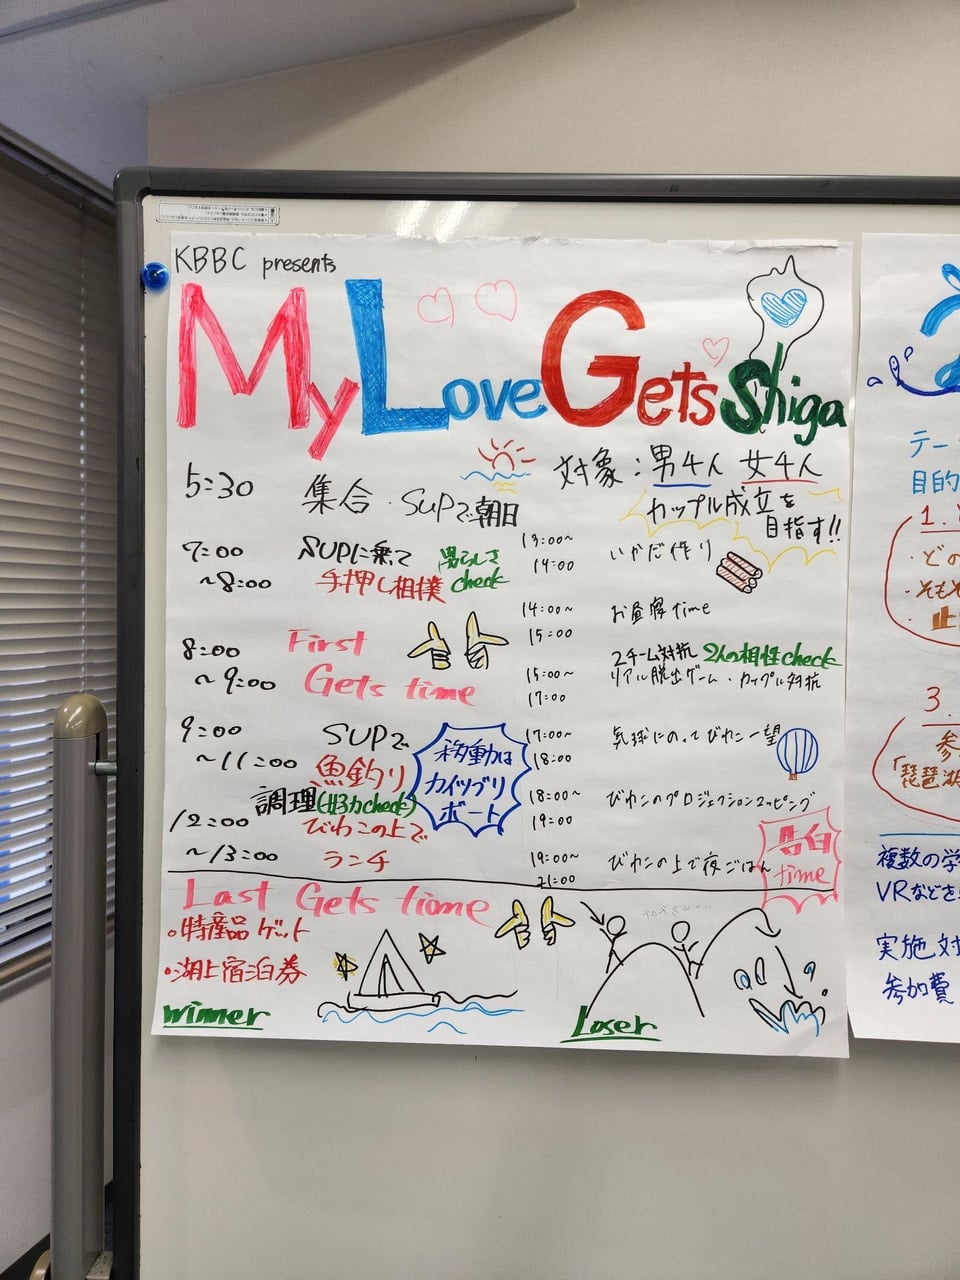 KBBC presents
My Love Gets Shiga
対象：男4人 女4人
カップル成立を
目指す!!
5:30 集合・SUPで朝日
7:00 SUPに乗って 男らしさ
～8:00 手押し相撲 check
8:00 First
～9:00 Gets time
9:00 SUPで
～11:00 魚釣り
調理(女子力check)
12:00 びわこの上で
～13:00 ランチ
移動は
カイツブリ
ボート
13:00～ いかだ作り
14:00
14:00～ お昼寝time
15:00
2チーム対抗 2人の相性check
15:00～ リアル脱出ゲーム・カップル対抗
17:00
17:00～ 気球にのってびわこ一望
18:00
18:00～ びわこのプロジェクションマッピング
19:00
19:00～ びわこの上で夜ごはん
21:00
告白
time
Last Gets tiome
・特産品ゲット
・湖上宿泊券
Winner
Loser
テー
目的
1.
・どの
・そもそ
止
3.
参
「琵琶湖
複数の学
VRなどを
実施対
参加費